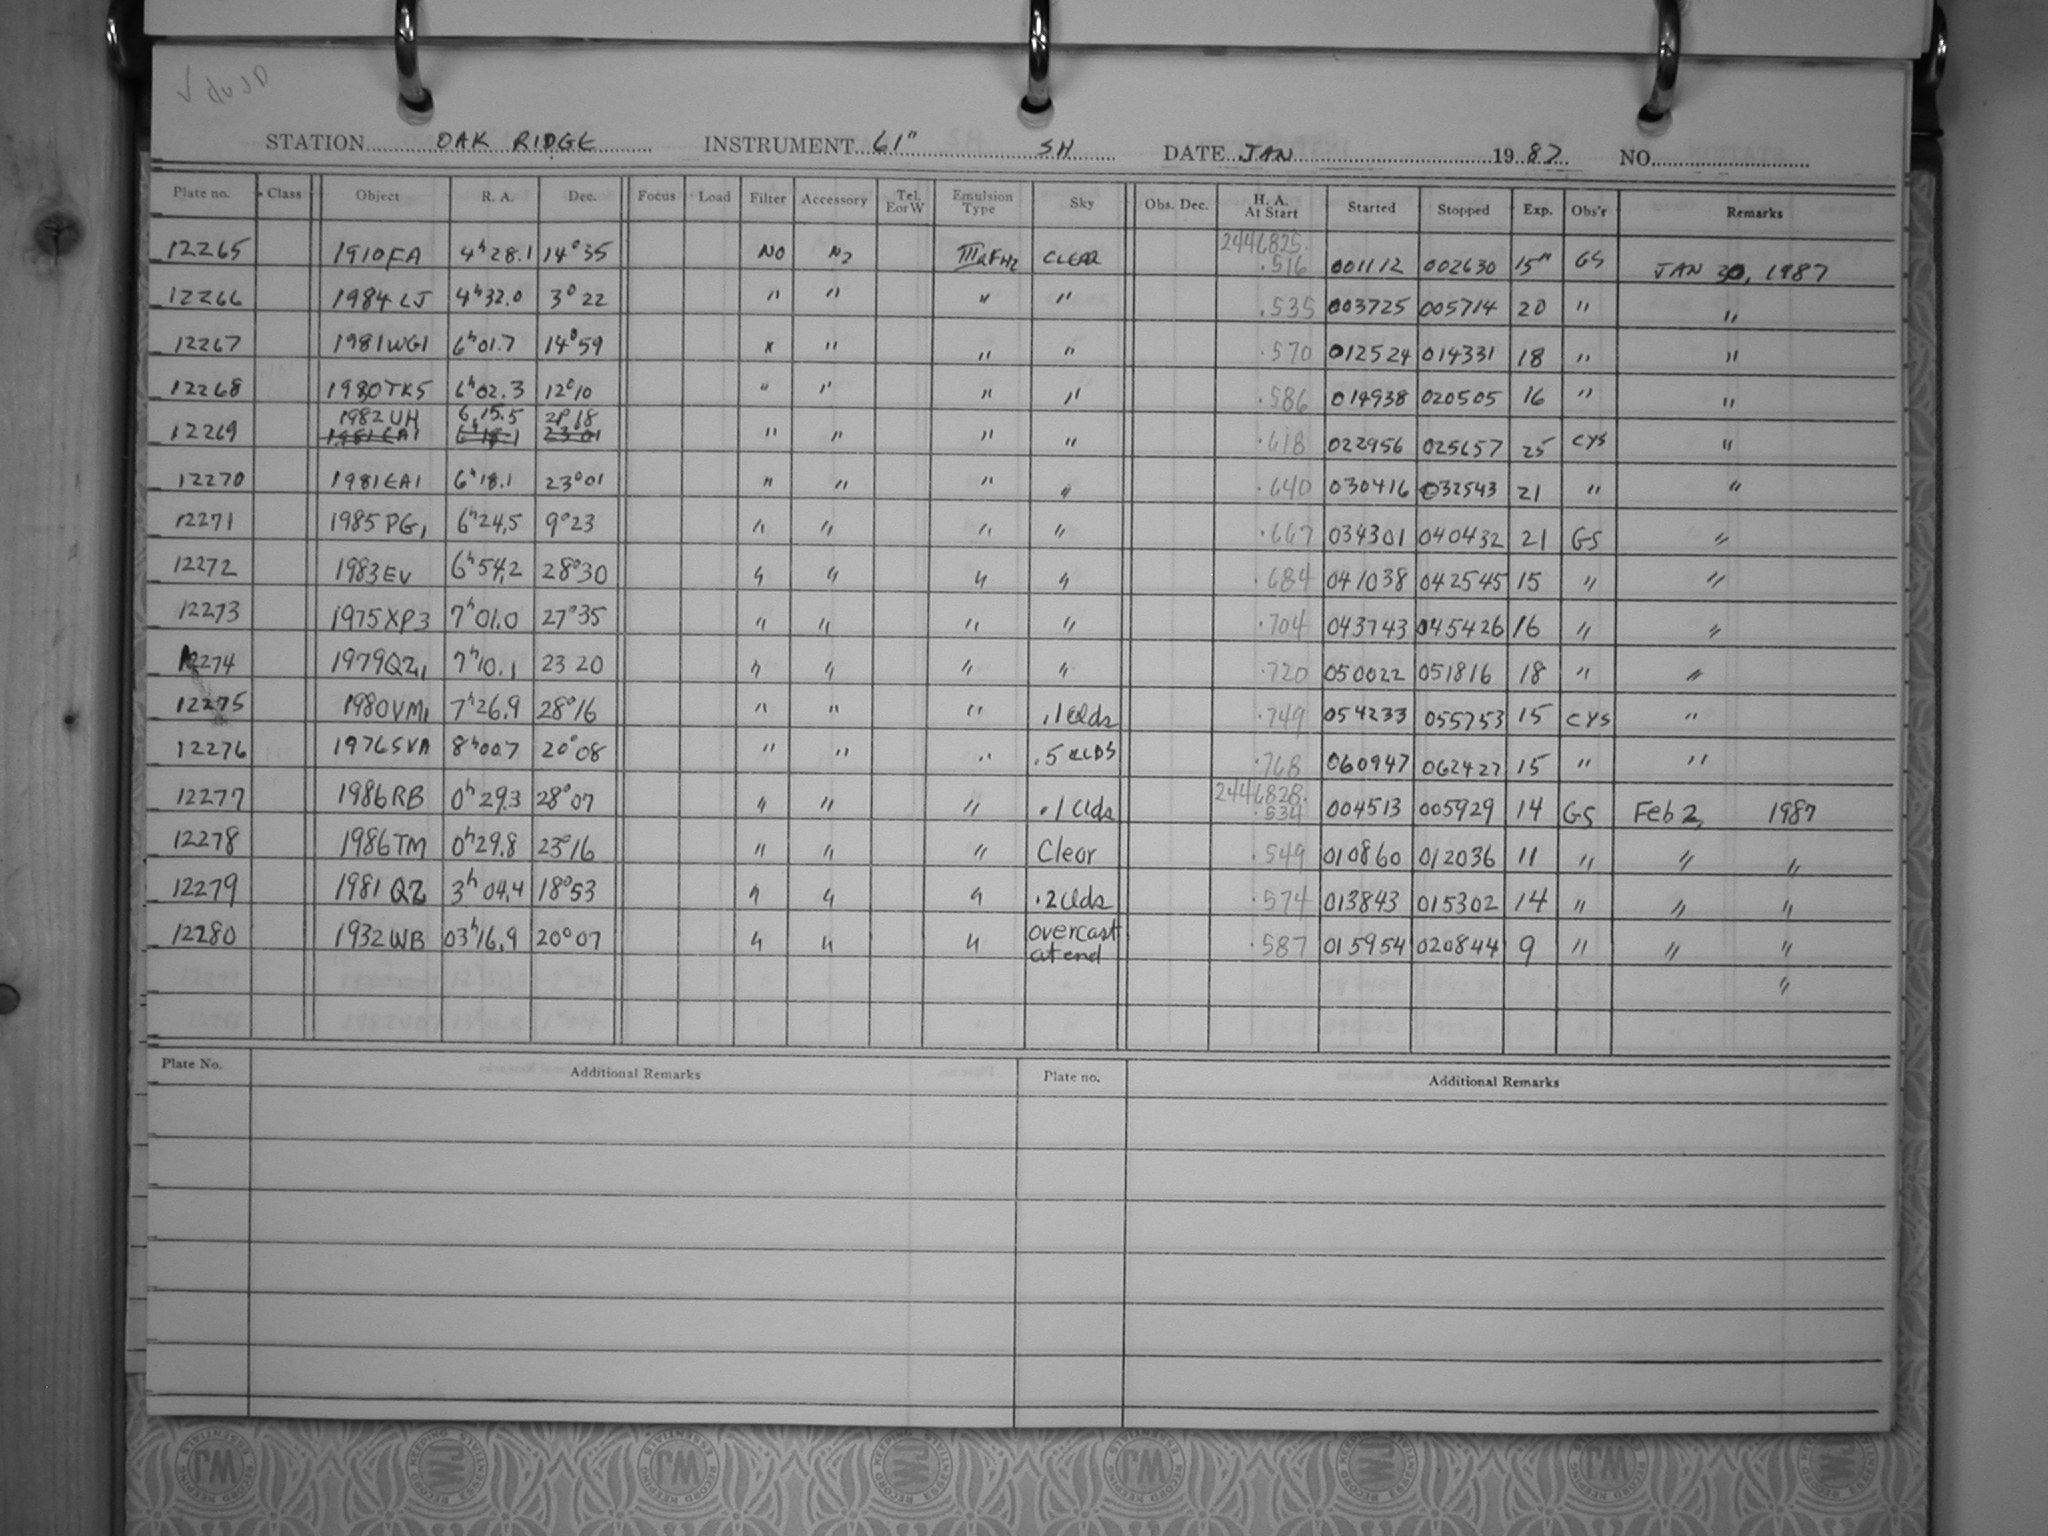 STATION OAK RIDGE INSTRUMENT 61" SH DATE JAN 1987 NO.
Plate no. Class Object R. A. Dec. Focus Load Filter Accessory Tel. E or W Emulsion Type Sky Obs. Dec. H. A. At Start Started Stopped Exp. Obs'r Remarks
12265 1910FA 4h28.1 14°35 NO N2 IIIaFH2 CLEAR 2446825. .516 001112 002630 15m GS JAN 30, 1987
12266 1984 LJ 4h32.0 3°22 " " " " .535 003725 005714 20 " "
12267 1981WG1 6h01.7 14°59 " " " " .570 012524 014331 18 " "
12268 1980TK5 6h02.3 12°10 " " " " .586 014938 020505 16 " "
1982UH 6.15.5 21°18
12269 1981EA1 6h18.1 23°01 " " " " .618 022956 025657 25 CYS "
12270 1981EA1 6h18.1 23°01 " " " " .640 030416 032543 21 " "
12271 1985 PG1 6h24.5 9°23 " " " " .667 034301 040432 21 GS "
12272 1983EV 6h54.2 28°30 " " " " .684 041038 042545 15 " "
12273 1975XP3 7h01.0 27°35 " " " " .704 043743 045426 16 " "
12274 1979QZ1 7h10.1 23 20 " " " " .720 050022 051816 18 " "
12275 1980VM1 7h26.9 28°16 " " " .1 Clds .749 054233 055753 15 CYS "
12276 1976SVA 8h00.7 20°08 " " " .5 CLDS .768 060947 062427 15 " "
12277 1986RB 0h29.3 28°07 " " " .1 Clds 2446828. .534 004513 005929 14 GS Feb 2, 1987
12278 1986TM 0h29.8 23°16 " " " Clear .549 010860 012036 11 " " "
12279 1981 QZ 3h04.4 18°53 " " " .2 Clds .574 013843 015302 14 " " "
12280 1932WB 03h16.9 20°07 " " " overcast at end .587 015954 020844 9 " " "
"
Plate No. Additional Remarks Plate no. Additional Remarks
JM RECORD KEEPING ESSENTIALS